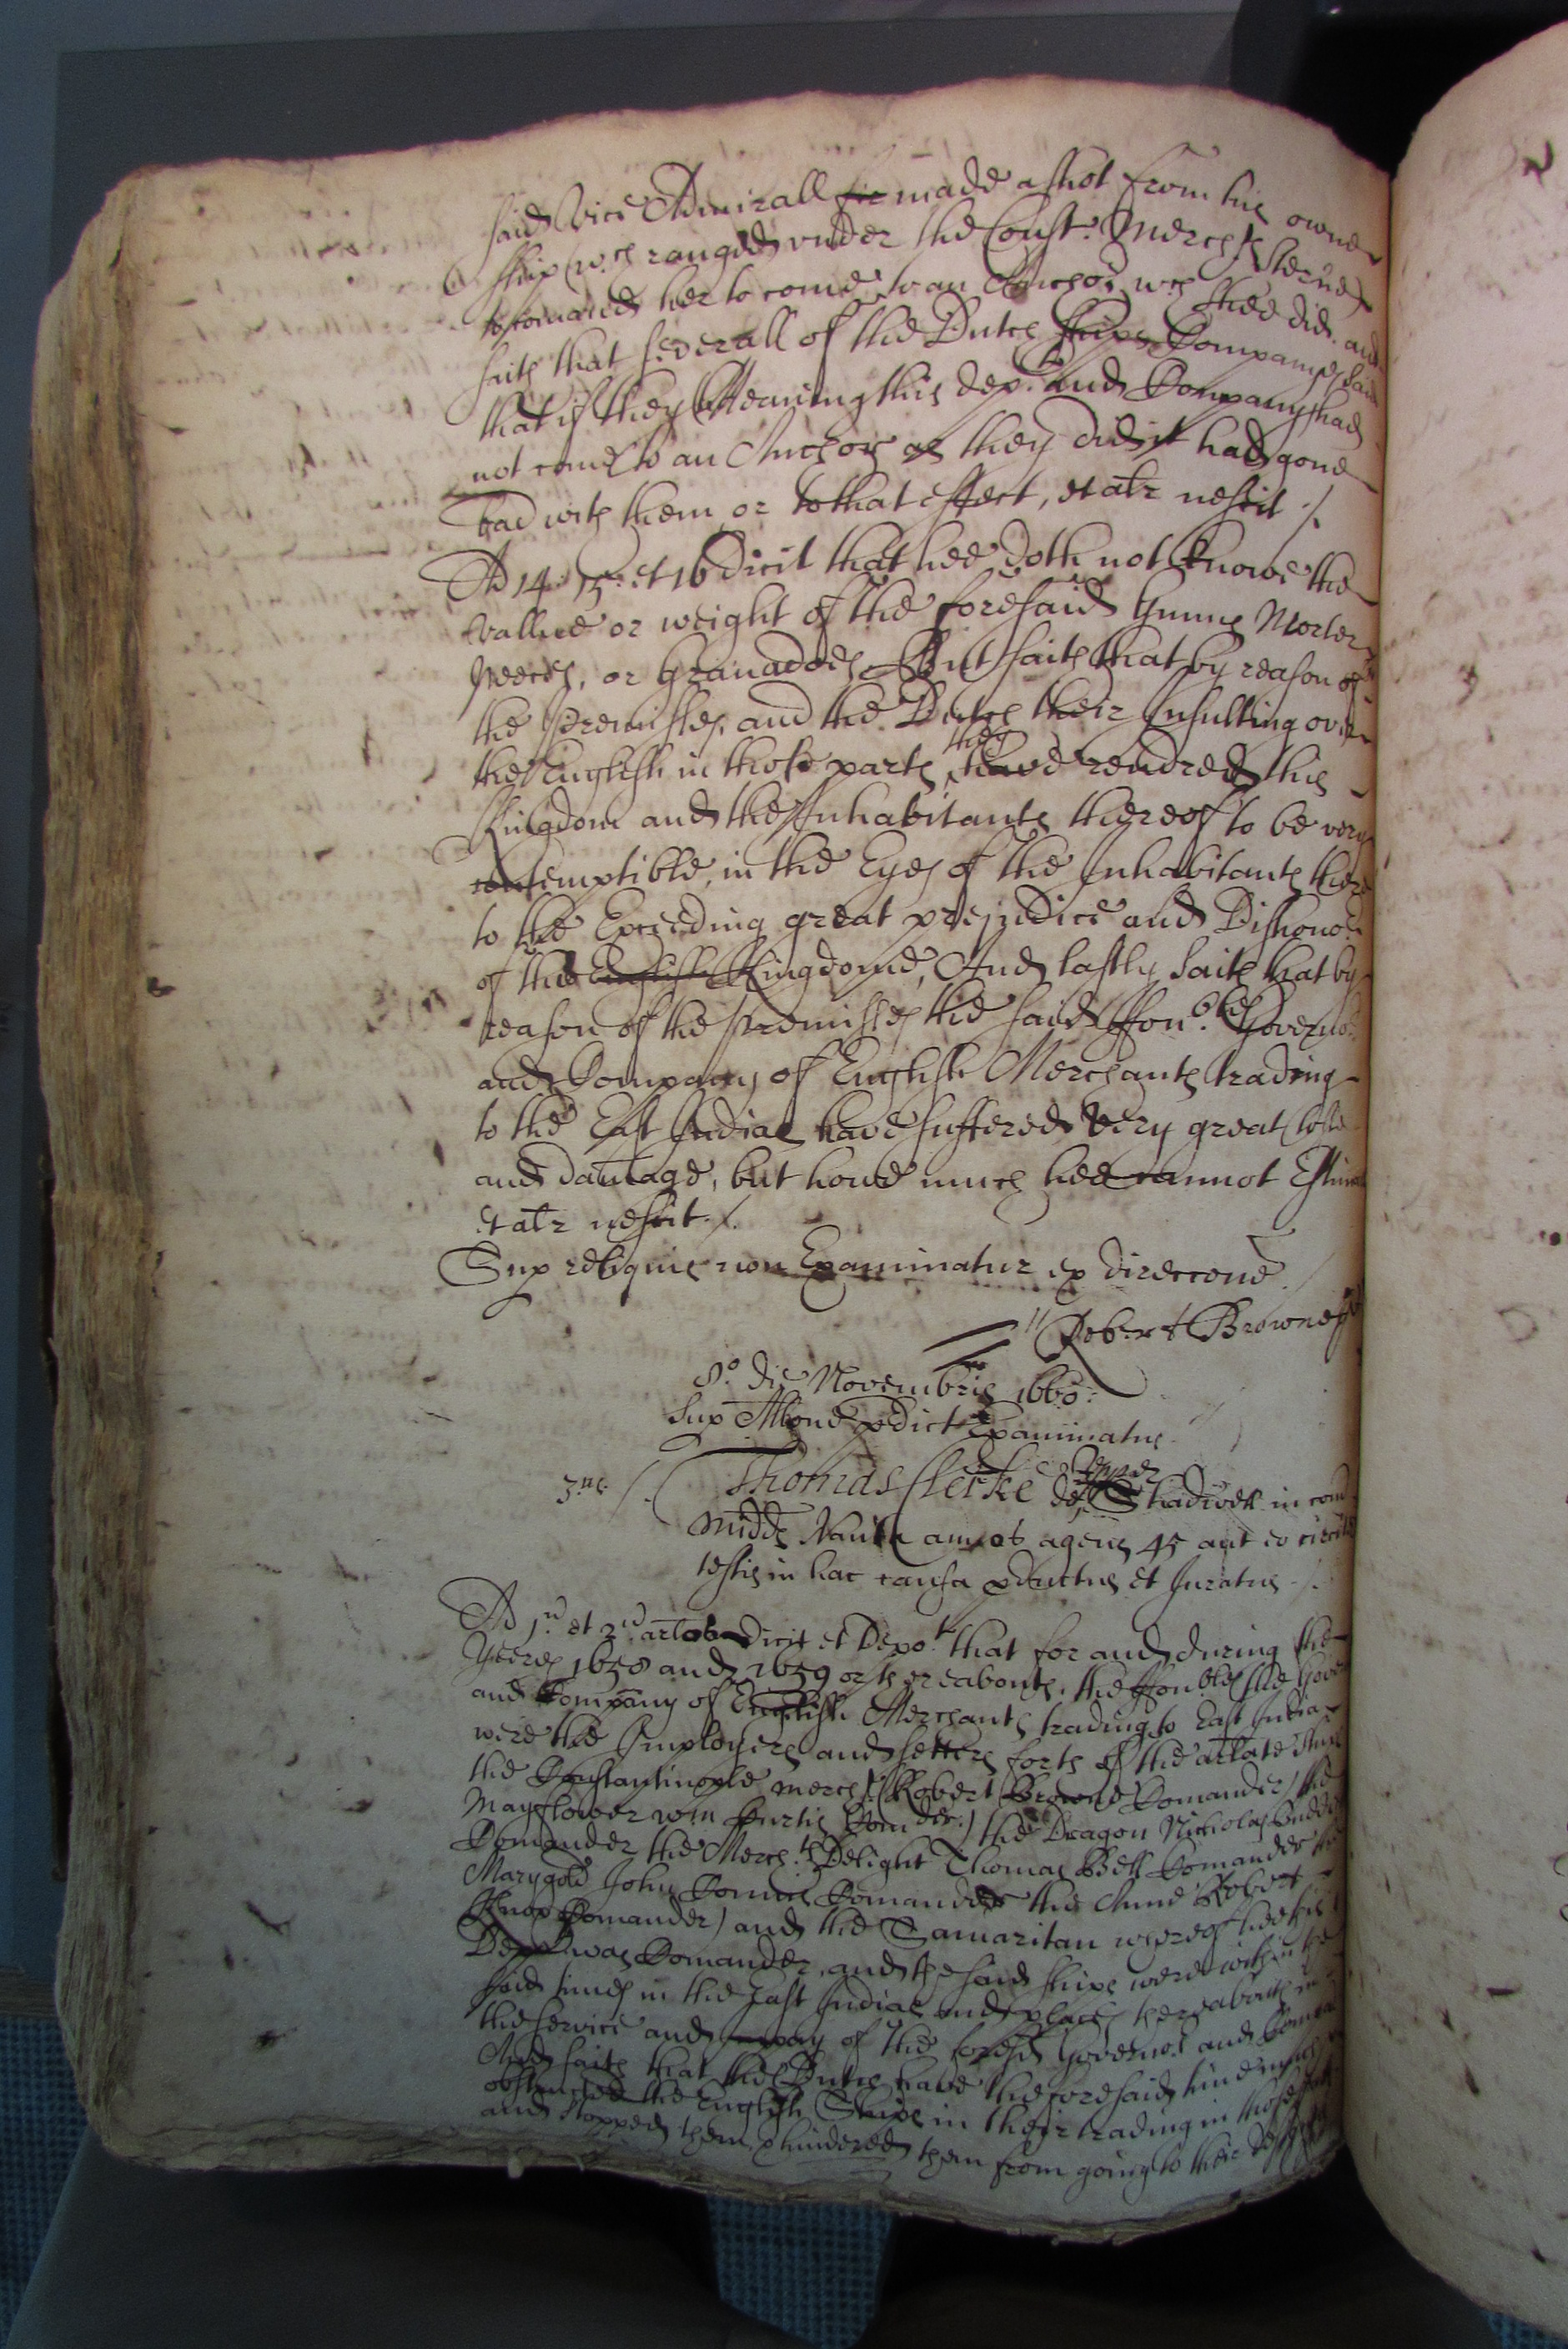 said Vice Admirall fir made a shot from his owne
ship wch ranged under the Const. Merchts Sterne
to comand her to come to an Anchor wch they did, and
saith that severall of the Dutch ships Companyes said
that if they Meaning this dept and Company had
not come to an Anchor as they did it had gone
bad with them or to that effect, et alr nescit /.
Ad 14. 15. et 16 dicit that hee doth not knowe the
vallue or weight of the foresaid Gunns Morter
peeces, or Granadoes But saith that by reason of
the premisses, and the Dutch their Insulting over
the English in those parts they have rendred this
Kingdom and the Inhabitants thereof to be very
contemptible, in the Eyes of the Inhabitants there
to the Exceeding great prejudice and Dishonor
of this English Kingdome, And lastly saith that by
reason of the premisses the said Honble the Governor
and Company of English Merchants trading
to the East Indias have suffered very great losse
and damage, but howe much hee cannot Estimate
et alr nescit. /.
Sup reliquis non Examinatur ex direccone
Robert Browne
8o die Novembris 1660:
Sup Allone pdict Examinatus
3us. /. Thomas Clerke de Shadwell in com
Midds Nauta annos agens 45 aut eo circiter
testis in hac causa pductus et Juratus /.
Ad 1u et 2u arlos dicit et Depot that for and during the
Yeeres 1658 and 1659 or thereabouts, the Honble the Gover
and Company of English Merchants trading to East India
were the Imployers and setters forth of the arlate ships
the Constantinople mercht (Robert Browne Comander) the
Mayflower Wm Curtis Comder.) the Dragon Nicholas
Comander the Merchts Delight Thomas Bell Comander the
Marygold John Comander the Anne Robert
Knox Comander) and the Samaritan whereof hee this
Dept was Comander, and the said ships were within the
said times in the East Indias and places thereabouts in
the service and pay of the foresd Governor and Company
And saith that the Dutch have the foresaid time much
obstructed the English Ships in their trading in those parts
and stopped them & hindered them from going to their